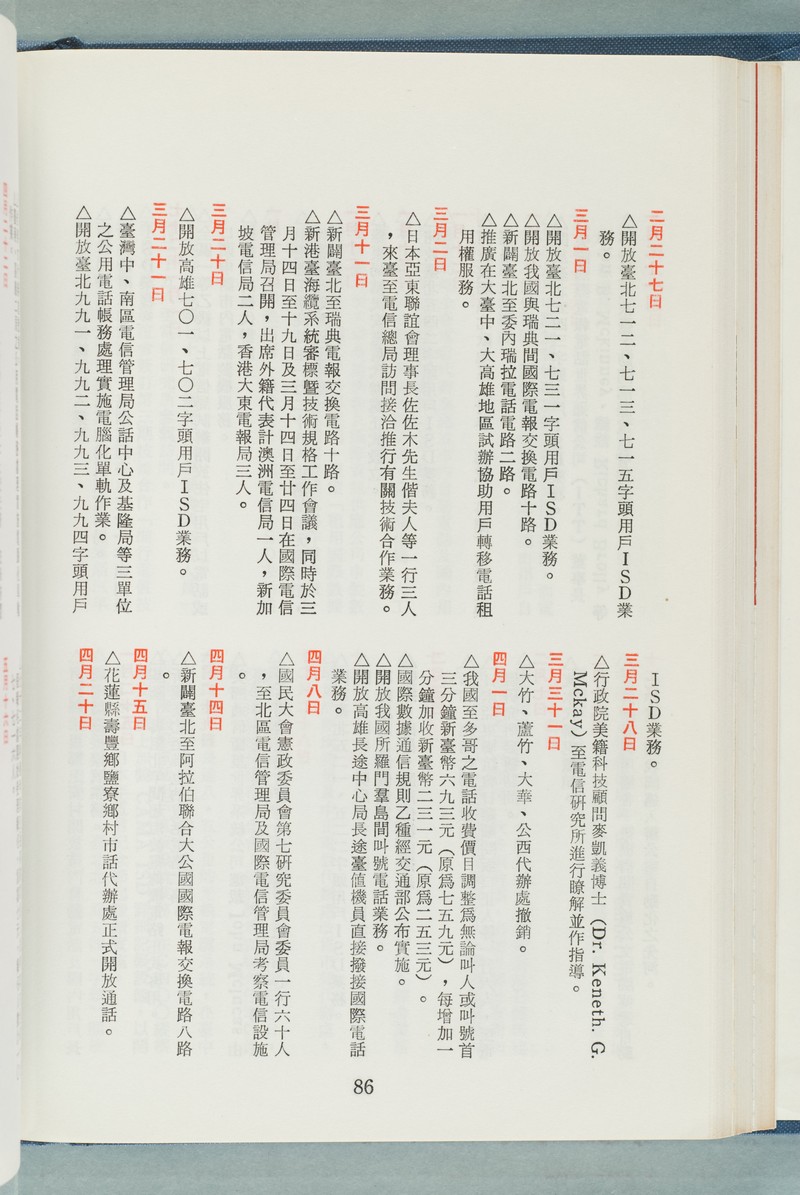 二月二十七日
△開放臺北七一二、七一三、七一五字頭用戶ＩＳＤ業
務。
三月一日
△開放臺北七二一、七三一字頭用戶ＩＳＤ業務。
△開放我國與瑞典間國際電報交換電路十路。
△新闢臺北至委內瑞拉電話電路二路。
△推廣在大臺中、大高雄地區試辦協助用戶轉移電話租
用權服務。
三月二日
△日本亞東聯誼會理事長佐佐木先生偕夫人等一行三人
，來臺至電信總局訪問接洽推行有關技術合作業務。
三月十一日
△新闢臺北至瑞典電報交換電路十路。
△新港臺海纜系統審標暨技術規格工作會議，同時於三
月十四日至十九日及三月十四日至廿四日在國際電信
管理局召開，出席外籍代表計澳洲電信局一人，新加
坡電信局二人，香港大東電報局三人。
三月二十日
△開放高雄七〇一、七〇二字頭用戶ＩＳＤ業務。
三月二十一日
△臺灣中、南區電信管理局公話中心及基隆局等三單位
之公用電話帳務處理實施電腦化單軌作業。
△開放臺北九九一、九九二、九九三、九九四字頭用戶
ＩＳＤ業務。
三月二十八日
△行政院美籍科技顧問麥凱義博士（Dr. Keneth. G.
Mckay）至電信硏究所進行瞭解並作指導。
三月三十一日
△大竹、蘆竹、大華、公西代辦處撤銷。
四月一日
△我國至多哥之電話收費價目調整爲無論叫人或叫號首
三分鐘新臺幣六九三元（原爲七五九元），每增加一
分鐘加收新臺幣二三一元（原爲二五三元）。
△國際數據通信規則乙種經交通部公布實施。
△開放我國所羅門羣島間叫號電話業務。
△開放高雄長途中心局長途臺值機員直接撥接國際電話
業務。
四月八日
△國民大會憲政委員會第七硏究委員會委員一行六十人
，至北區電信管理局及國際電信管理局考察電信設施
。
四月十四日
△新闢臺北至阿拉伯聯合大公國國際電報交換電路八路
。
四月十五日
△花蓮縣壽豐鄉鹽寮鄉村市話代辦處正式開放通話。
四月二十日
86